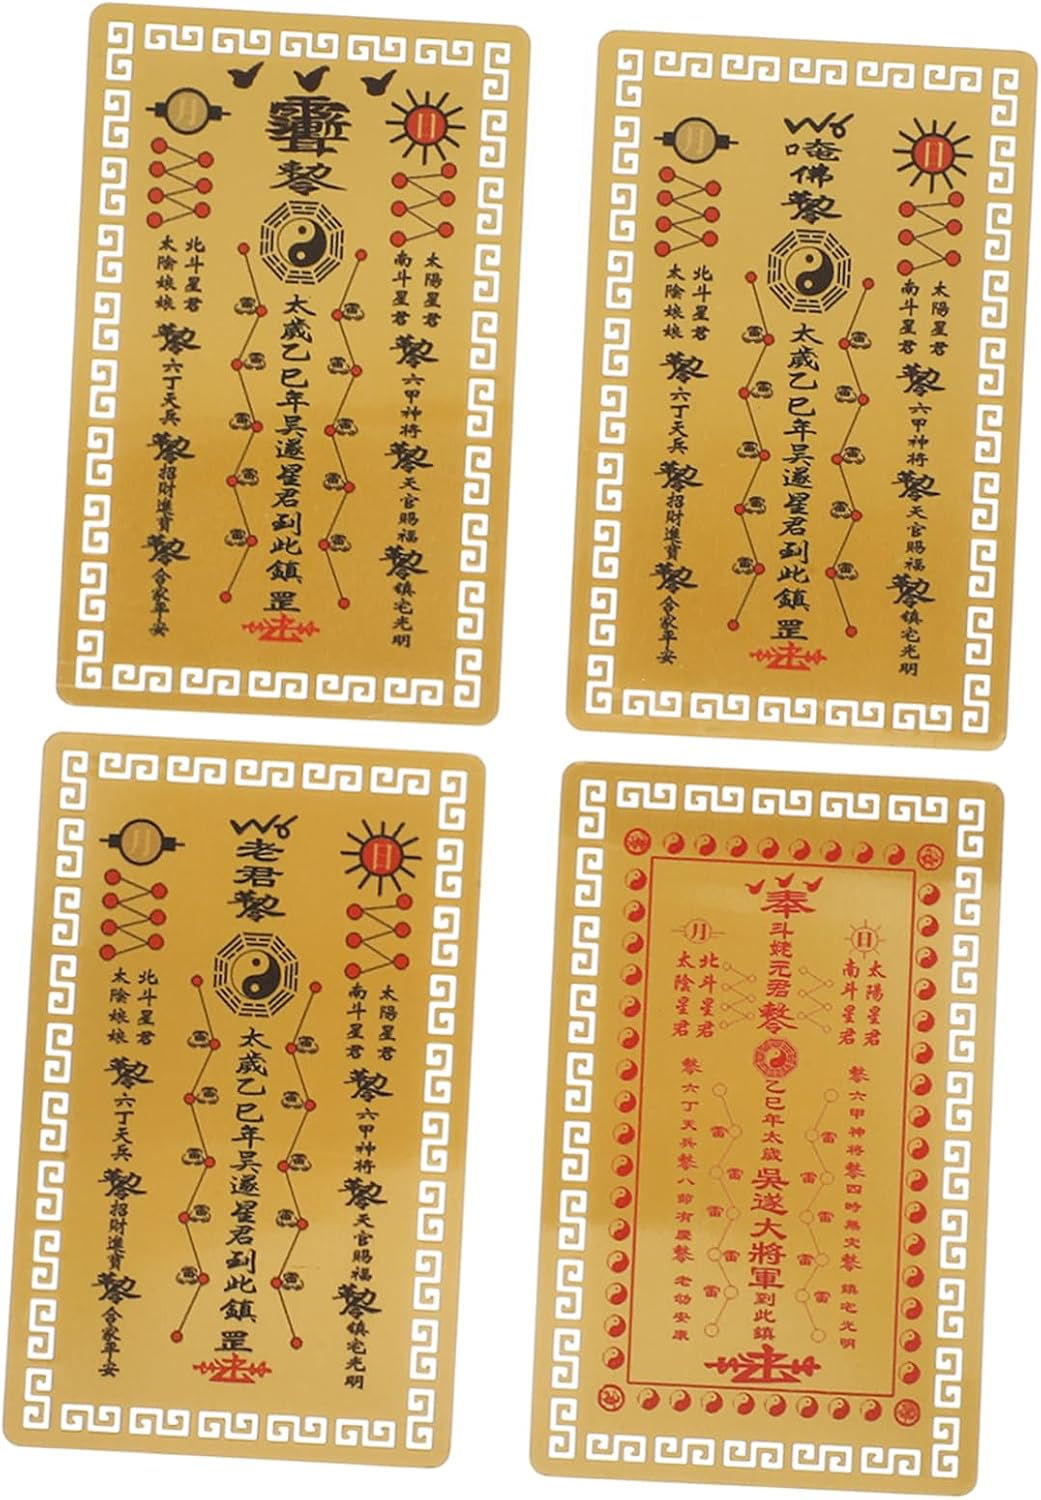 月
日
北斗星君
太陰娘娘
太陽星君
南斗星君
太歲乙巳年吴遂星君到此鎮
罡
雷
雷
雷
雷
雷
雷
雷
雷
六丁天兵
招財進寶
合家平安
六甲神将
天官賜福
鎮宅光明
月
日
唵佛
北斗星君
太陰娘娘
太陽星君
南斗星君
太歲乙巳年吴遂星君到此鎮
罡
雷
雷
雷
雷
雷
雷
雷
雷
六丁天兵
招財進寶
合家平安
六甲神将
天官賜福
鎮宅光明
月
日
老君
北斗星君
太陰娘娘
太陽星君
南斗星君
太歲乙巳年吴遂星君到此鎮
罡
雷
雷
雷
雷
雷
雷
雷
雷
雷
雷
六丁天兵
招財進寶
合家平安
六甲神将
天官賜福
鎮宅光明
奉
斗姥元君
月
日
北斗星君
太陰星君
太陽星君
南斗星君
乙巳年太歲
吳遂大將軍
到此鎮
雷
雷
雷
雷
雷
雷
雷
雷
雷
雷
六丁天兵
八節有慶
老幼安康
六甲神將
四時無災
鎮宅光明